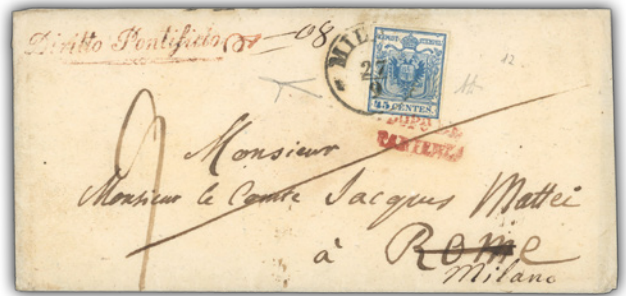 Diritto Pontificio 08
MIL
27
45 CENTES.
12
DOPO LA
PARTENZA
Monsieur
Monsieur le Comte Jacques Mattei
à Rome
Milano